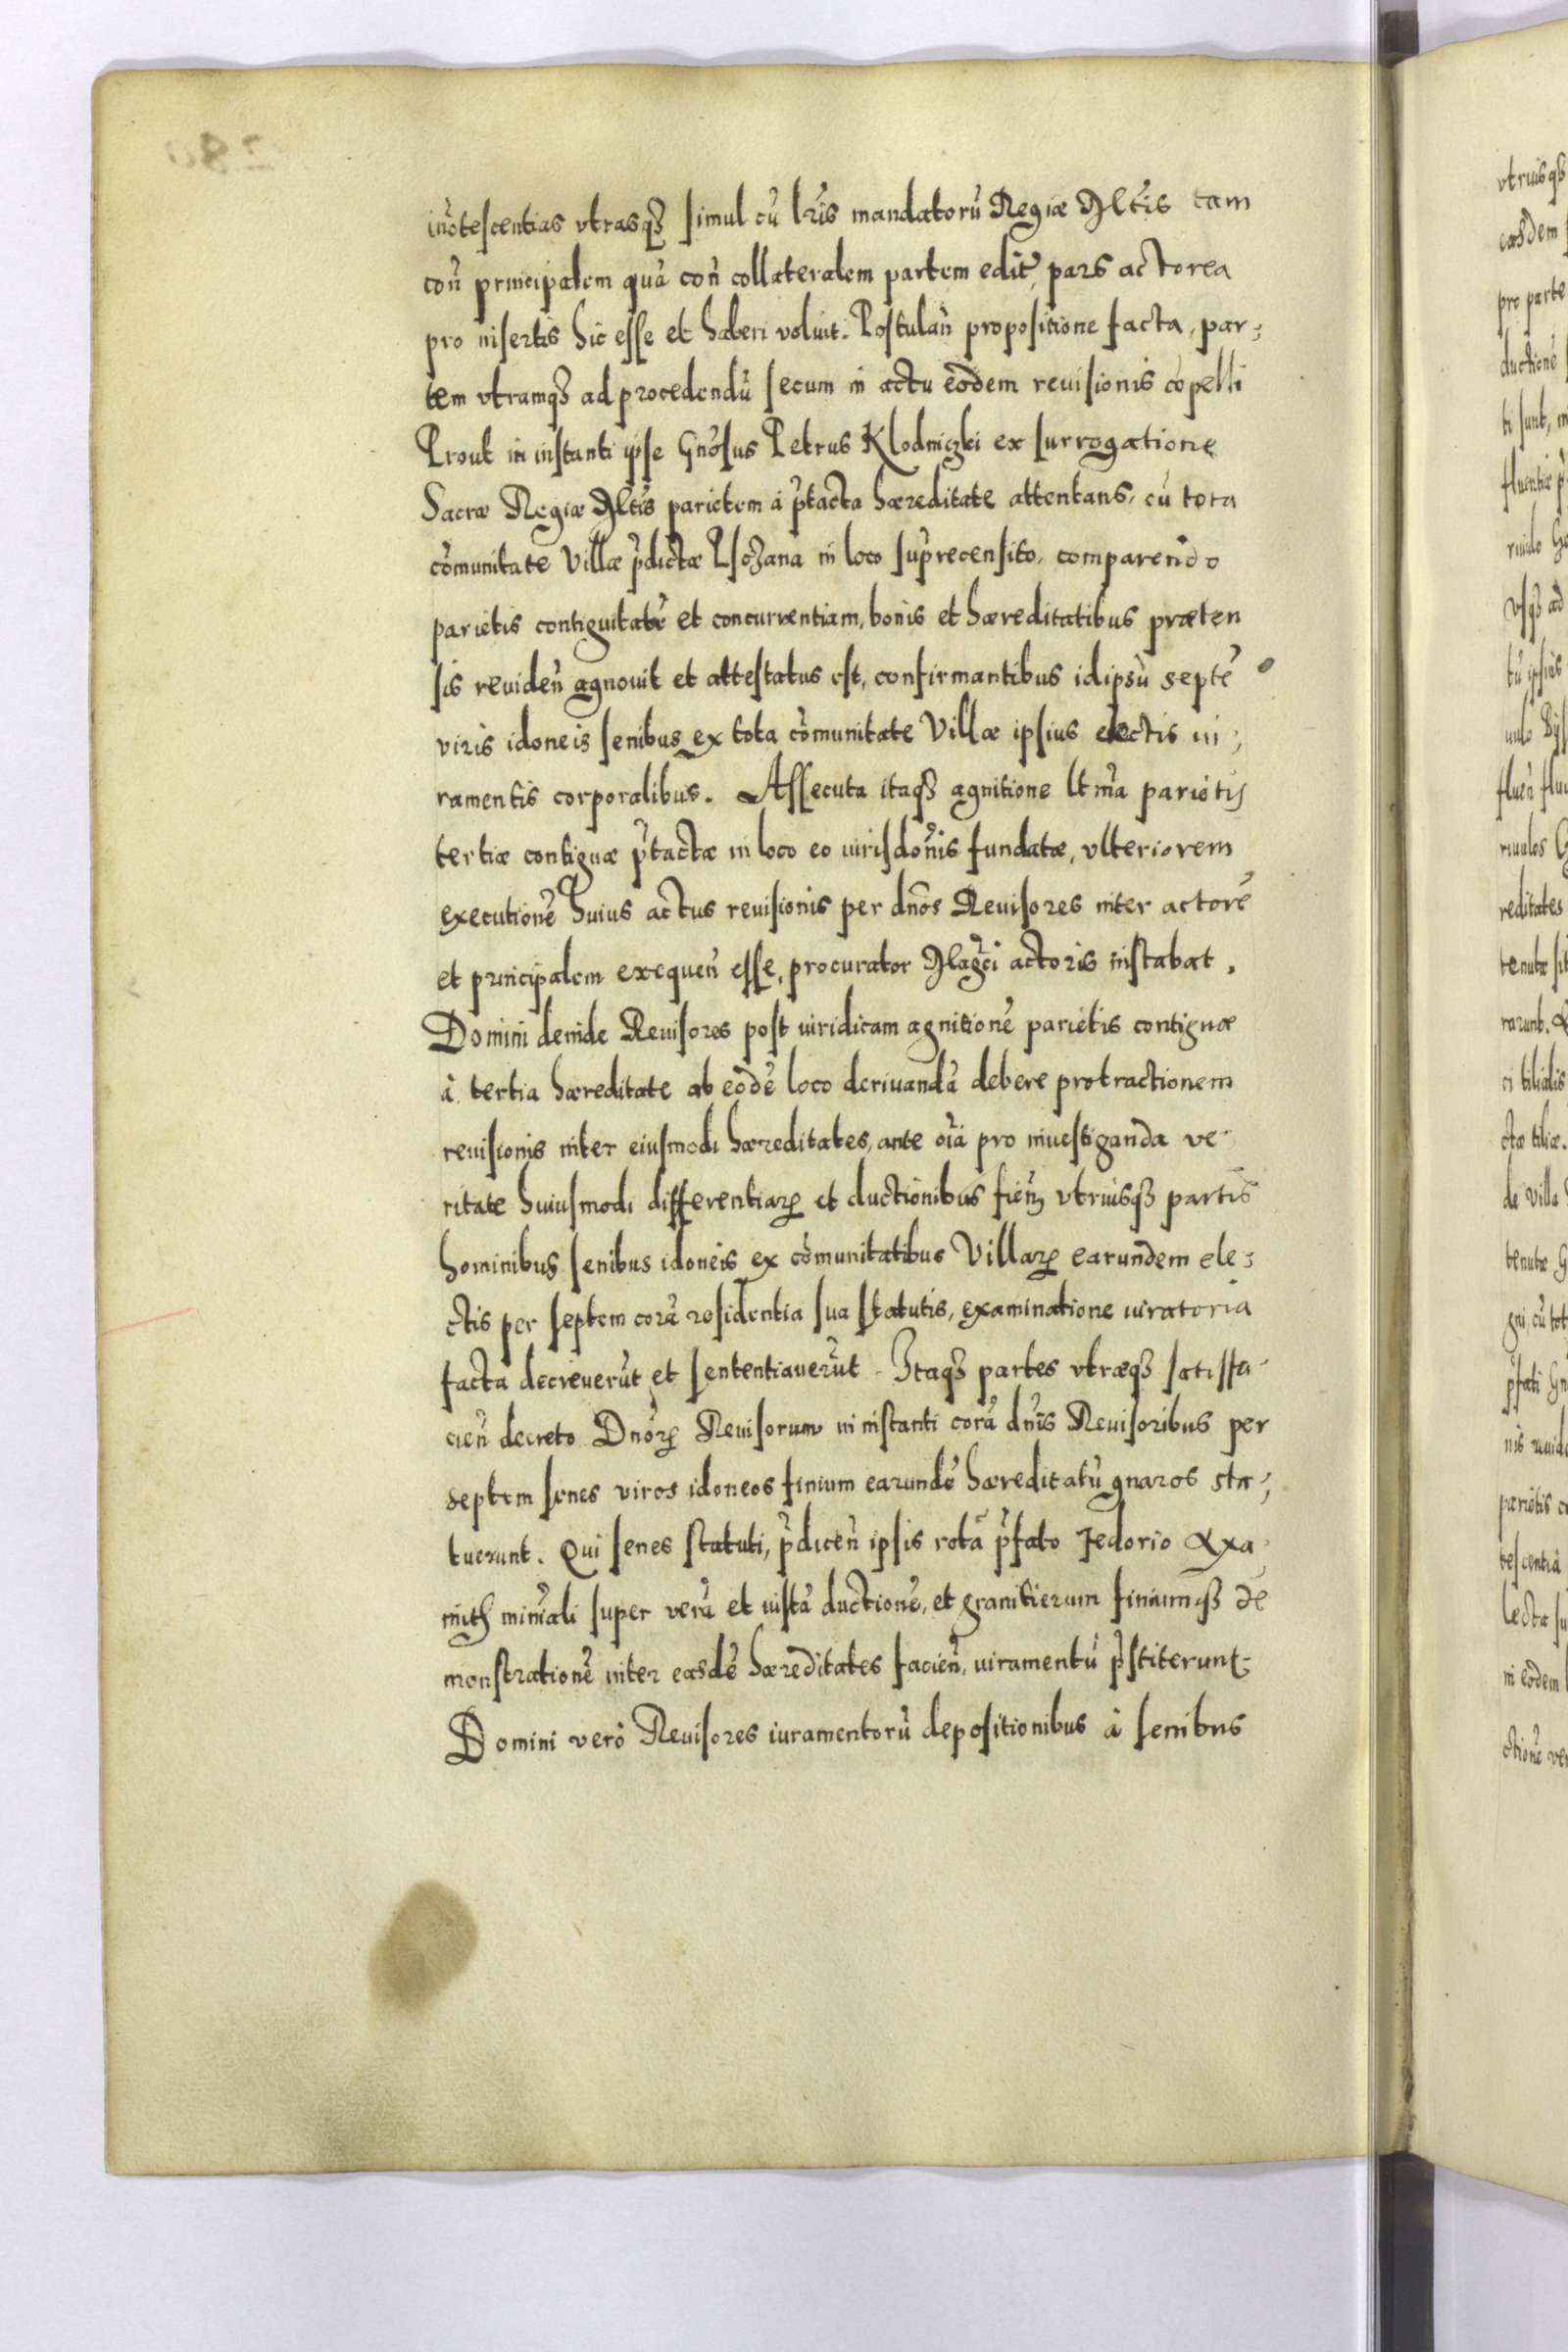 in̄otescentias vtrasqꝫ simul cū lr̄is mandatorū Regiæ Mt̄is tam
con̄ principalem quā con̄ collateralem partem edit, pars actorea
pro insertis hic esse et haberi voluit. Postulan̄ propositione facta, par-
tem vtramqꝫ ad procedendū secum in actu eodem reuisionis cōpelli
Prout in instanti ipse Gn̄osus Petrus Klodniczki ex surrogatione
Sacræ Regiæ Mt̄is parietem à p̄tacta hæreditate attentans, cū tota
cōmunitate Villæ p̄dictæ Psczana in loco sup̄recensito, comparendo
parietis contiguitatē et concurrentiam, bonis et hæreditatibus præten
sis reuiden̄ agnouit et attestatus est, confirmantibus idipsū septē
viris idoneis senibus ex tota cōmunitate Villæ ipsius electis iu-
ramentis corporalibus. Assecuta itaqꝫ agnitione lt̄ma parietis
tertiæ contiguæ p̄tactæ in loco eo iurisdōnis fundatæ, vlteriorem
executionē huius actus reuisionis per dn̄os Reuisores inter actorē
et principalem exequen̄ esse, procurator Maḡci actoris instabat.
Domini deinde Reuisores post iuridicam agnitionē parietis contiguæ
à tertia hæreditate ab eodē loco deriuandā debere protractionem
reuisionis inter eiusmodi hæreditates, ante oīa pro inuestiganda ve-
ritate huiusmodi differentiaꝝ et ductionibus fien̄ vtriusqꝫ partis
hominibus senibus idoneis ex cōmunitatibus Villaꝝ earundem ele-
ctis per septem corā residentia sua statutis, examinatione iuratoria
facta decreuerūt et sententiauerūt. Itaqꝫ partes vtræqꝫ satisfa-
cien̄ decreto Dn̄oꝝ Reuisorum in instanti corā dn̄is Reuisoribus per
septem senes viros idoneos finium earundē hæreditatū gnaros sta-
tuerunt. Qui senes statuti, p̄dicen̄ ipsis rotā p̄fato Fedorio Axa
mith min̄rali super verā et iustā ductionē, et granitierum finiumqꝫ de
monstrationē inter easdē hæreditates facien̄, iuramentū p̄stiterunt.
Domini verò Reuisores iuramentorū depositionibus à senibus